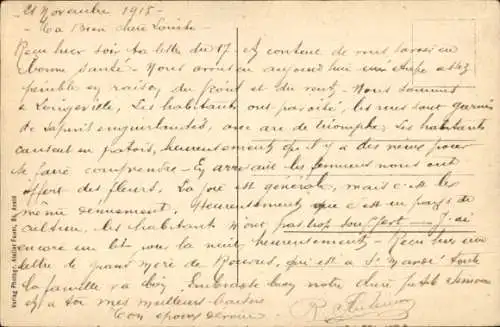 21 Novembre 1918 -
- Ma Bien chère Louise -
Reçu hier soir ta lettre du 17 et content de vous savoir en
bonne santé - Nous avons eu aujourd'hui une étape assez
pénible en raison du froid et du vent - Nous sommes
à Longeville, Les habitants ont pavoisé, les rues sont garnies
de sapins enguirlandés, avec arc de triomphe, Les habitants
causent en patois, heureusement qu'il y a des vieux pour
se faire comprendre - En arrivant les femmes nous ont
offert des fleurs. La joie est générale, mais c'est les
même dénuement. Heureusement que c'est un pays de
culture, les habitants n'ont pas trop souffert - J'ai
encore un lit pour la nuit heureusement - Reçu hier une
lettre de qui est à St toute
la famille va bien. Embrasse bien notre cher petit Simon
et à toi mes meilleurs baisers
Ton époux dévoué
Verlag Phönix, Atelier